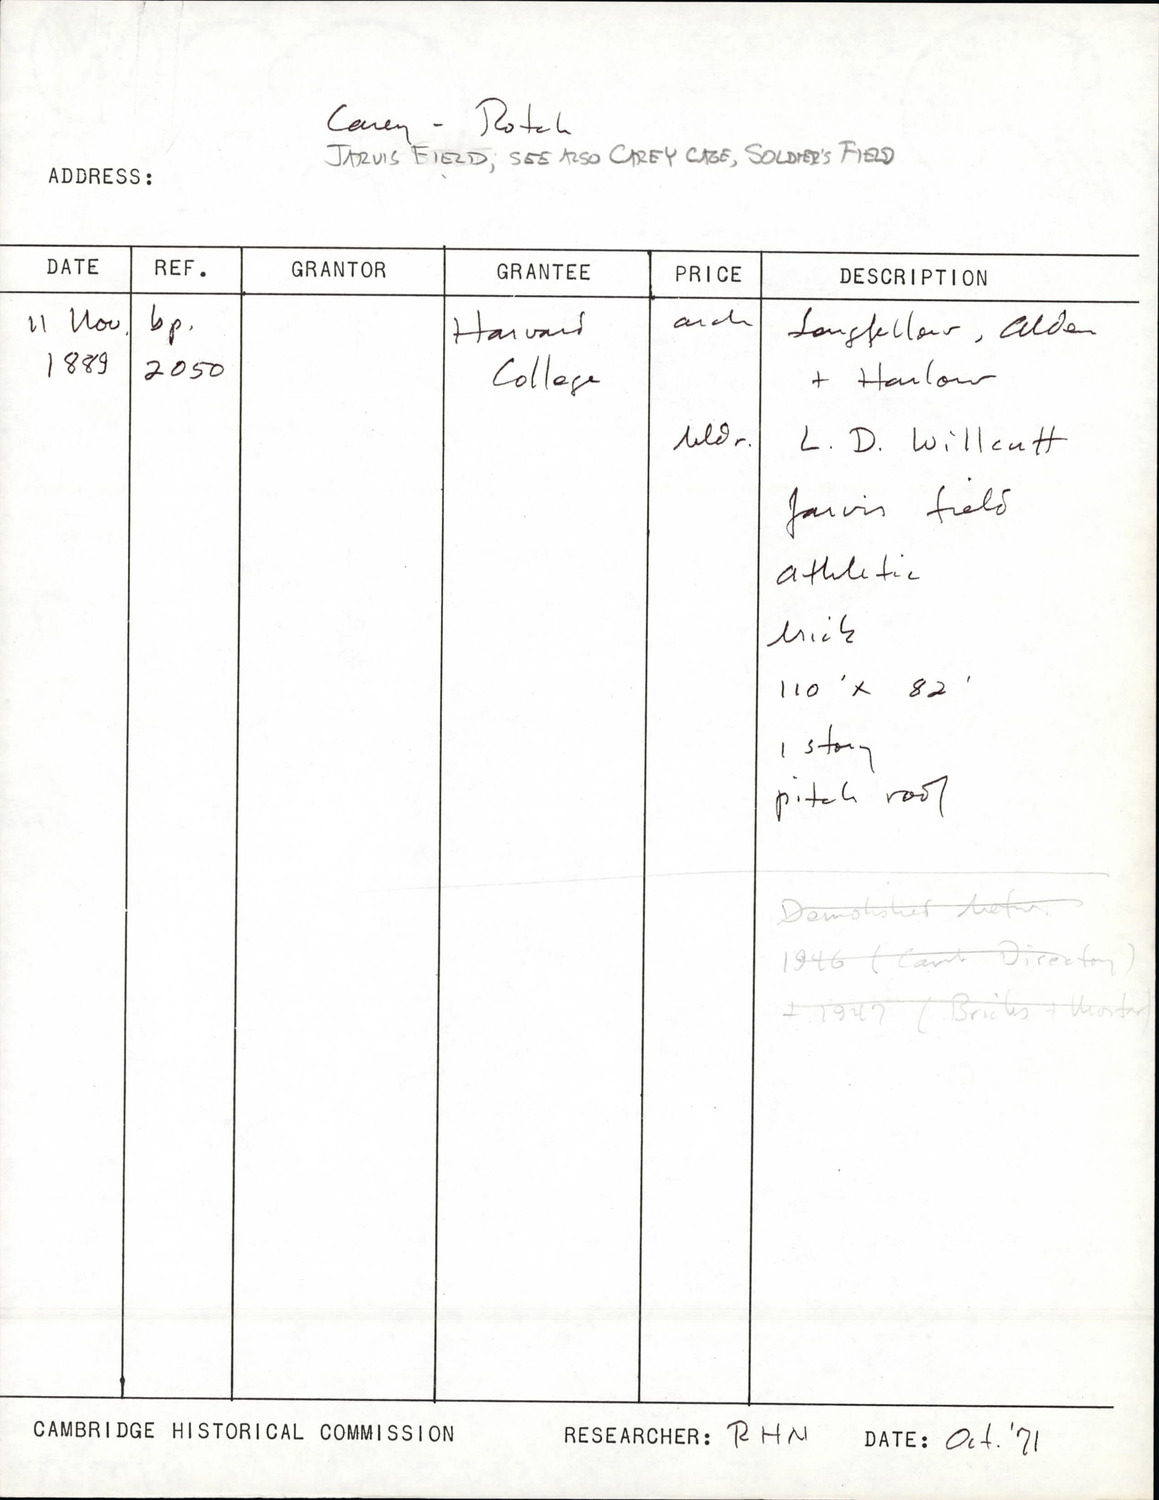 Carey - Rotch
JARVIS FIELD; SEE ALSO CAREY CAGE, SOLDIER'S FIELD
ADDRESS:
DATE REF. GRANTOR GRANTEE PRICE DESCRIPTION
11 Nov. bp. Harvard arch Longfellow, Alden
1889 2050 College + Harlow
bldr. L. D. Willcutt
Jarvis field
athletic
brick
110' x 82'
1 story
pitch roof
Demolished betw.
1946 (Camb Directory)
+ 1947 (Bricks + Mortar
CAMBRIDGE HISTORICAL COMMISSION RESEARCHER: RHN DATE: Oct. '71